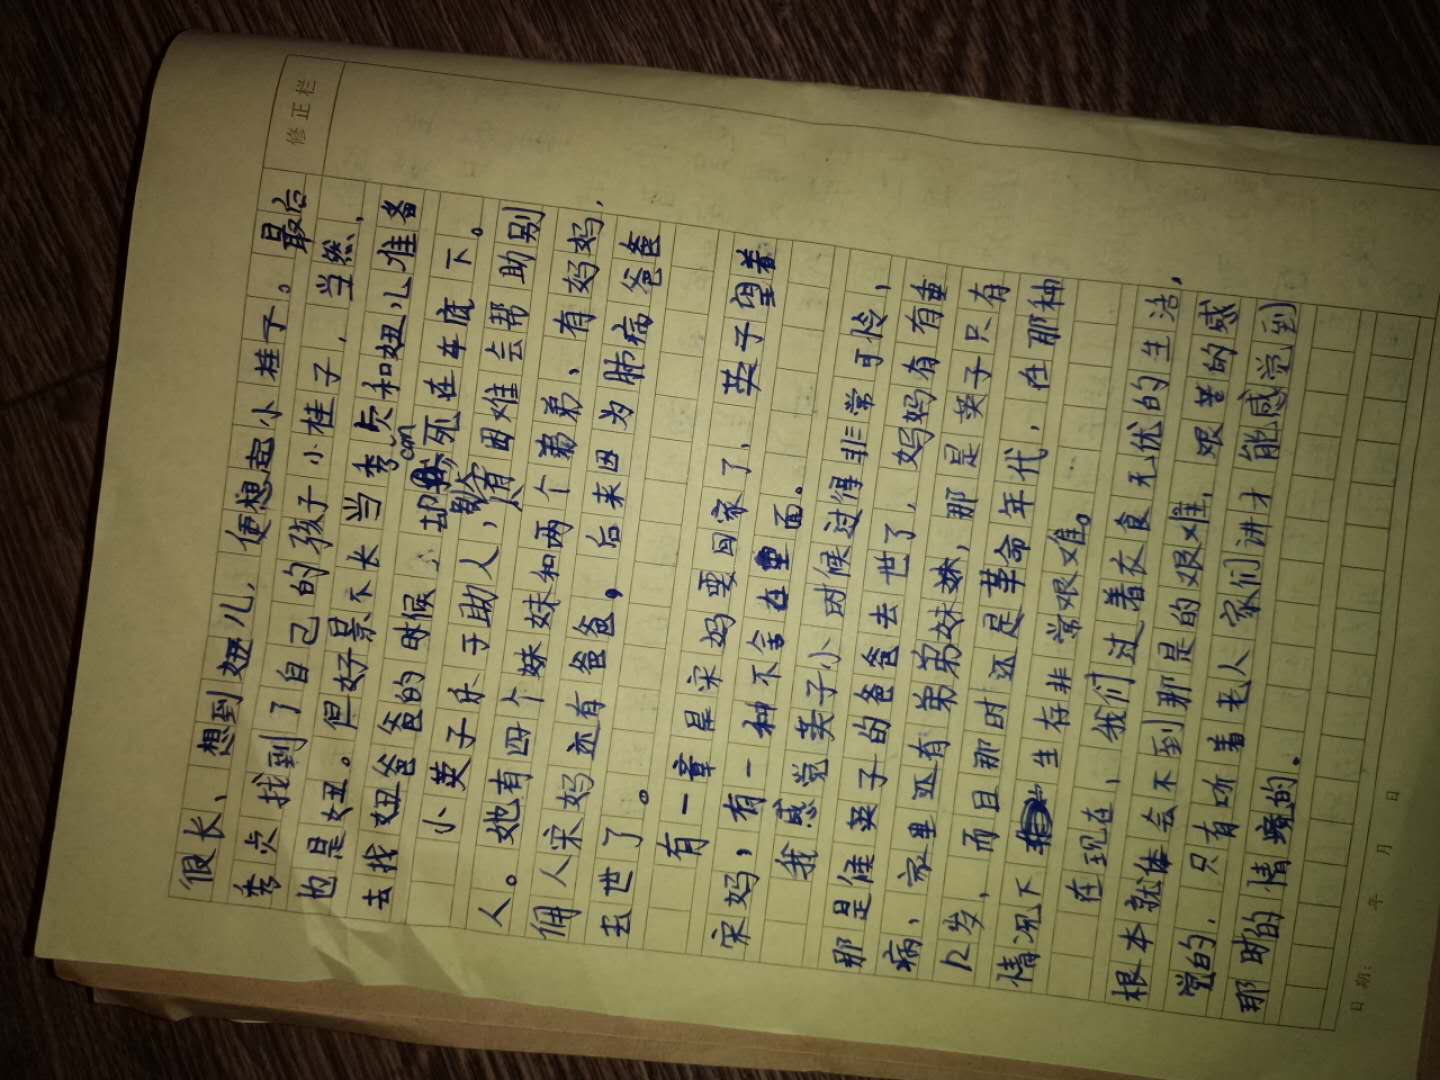 修正栏
很长、想到妞儿,便想起小桂子。最后
秀贞找到了自己的孩子小桂子,当然、
也是妞丑。但好景不长当秀贞和妞儿准备
去找妞爸爸的时候,却 can 死在车底下。
小英子乐于助人,只有困难会帮助别
人。她有四个妹妹和两个弟弟、有妈妈,
佣人宋妈还有爸爸,后来因为肺病爸爸
去世了。
有一章是宋妈要回家了,英子望着
宋妈,有一种不舍在里面。
我感觉英子小时候过得非常可怜、
那是候英子的爸爸去世了,妈妈有有重
病,家里还有弟弟妹妹,那是英子只有
12岁,而且那时还是革命年代,在那种
情况下生存非常艰难。
在现在,我们过着衣食无忧的生活,
根本就体会不到那是的艰难,艰苦的感
觉的,只有听着老人家们讲才能感觉到
那时的情境的。
日期: 年 月 日